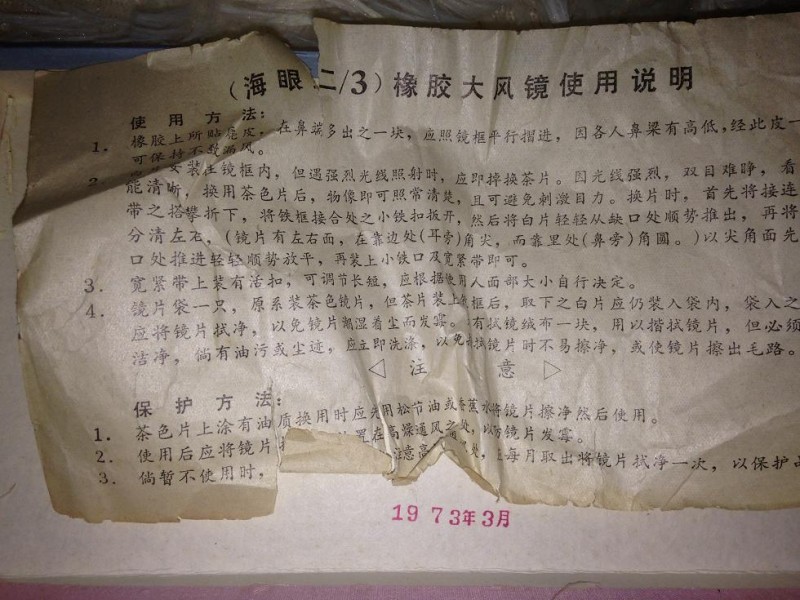 (海眼二/3)橡胶大风镜使用说明
使用方法:
1. 橡胶上所贴 皮,在鼻端多出之一块,应照镜框平行摺进,因各人鼻梁有高低,经此皮一
可保持不致漏风。
2. 安装在镜框内,但遇强烈光线照射时,应即掉换茶片。因光线强烈,双目难睁,看
能清晰,换用茶色片后,物像即可照常清楚,且可避免刺激目力。换片时,首先将接连
带之搭攀折下,将铁框接合处之小铁扣扳开,然后将白片轻轻从缺口处顺势推出,再将
分清左右,(镜片有左右面,在靠边处(耳旁)角尖,而靠里处(鼻旁)角圆。)以尖角面先
口处推进轻轻顺势放平,再装上小铁口及宽紧带即可。
3. 宽紧带上装有活扣,可调节长短,应根据使用人面部大小自行决定。
4. 镜片袋一只,原系装茶色镜片,但茶片装上镜框后,取下之白片应仍装入袋内,袋入之
应将镜片拭净,以免镜片潮湿着尘而发霉。有拭镜绒布一块,用以揩拭镜片,但必须
洁净,倘有油污或尘迹,应立即洗涤,以免 拭镜片时不易擦净,或使镜片擦出毛路。
◁ 注 意 ▷
保护方法:
1. 茶色片上涂有油质换用时应先用松节油或香蕉水将镜片擦净然后使用。
2. 使用后应将镜片 置在高燥通风之处,以防镜片发霉。
3. 倘暂不使用时, 注意高 处,每月取出将镜片拭净一次,以保护
1973年3月